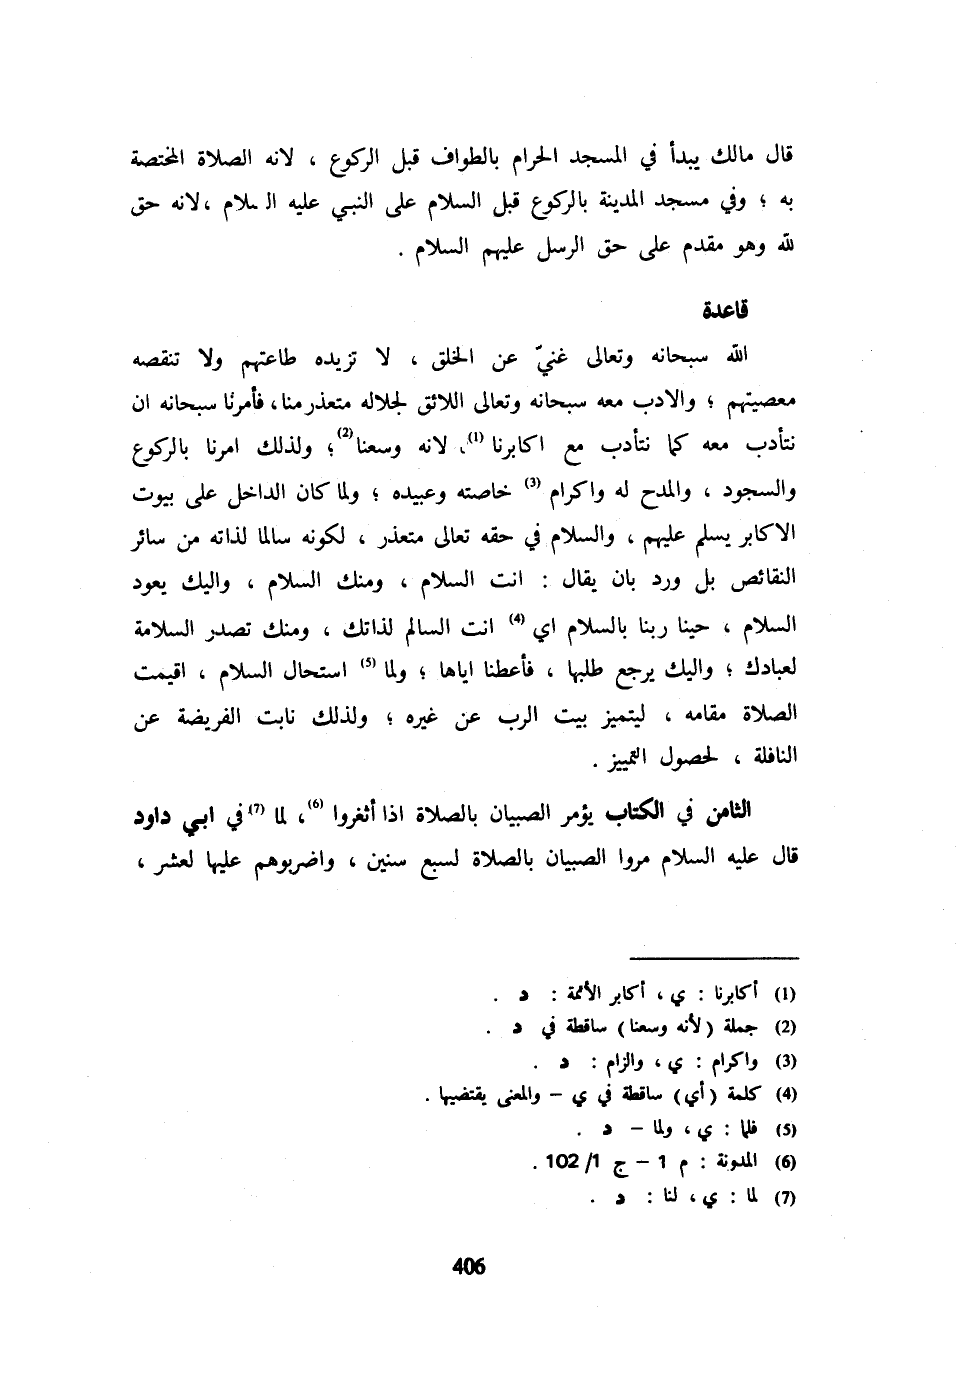 قال مالك يبدأ في المسجد الحرام بالطواف قبل الركوع ، لانه الصلاة المختصة
به ؛ وفي مسجد المدينة بالركوع قبل السلام على النبي عليه السلام ،لانه حق
لله وهو مقدم على حق الرسل عليهم السلام .
قاعدة
الله سبحانه وتعالى غنيّ عن الخلق ، لا تزيده طاعتهم ولا تنقصه
معصيتهم ؛ والادب معه سبحانه وتعالى اللائق لجلاله متعذر منا، فأمرنا سبحانه ان
نتأدب معه كما نتأدب مع اكابرنا (1)، لانه وسعنا(2)؛ ولذلك امرنا بالركوع
والسجود ، والمدح له واكرام (3) خاصته وعبيده ؛ ولما كان الداخل على بيوت
الاكابر يسلم عليهم ، والسلام في حقه تعالى متعذر ، لكونه سالما لذاته من سائر
النقائص بل ورد بان يقال : انت السلام ، ومنك السلام ، واليك يعود
السلام ، حينا ربنا بالسلام اي (4) انت السالم لذاتك ، ومنك تصدر السلامة
لعبادك ؛ واليك يرجع طلبها ، فأعطنا اياها ؛ ولما (5) استحال السلام ، اقيمت
الصلاة مقامه ، ليتميز بيت الرب عن غيره ؛ ولذلك نابت الفريضة عن
النافلة ، لحصول التمييز .
الثامن في الكتاب يؤمر الصبيان بالصلاة اذا أثغروا (6)، لما (7) في ابي داود
قال عليه السلام مروا الصبيان بالصلاة لسبع سنين ، واضربوهم عليها لعشر ،
(1) أكابرنا : ي ، أكابر الأئمة : د .
(2) جملة (لأنه وسعنا) ساقطة في د .
(3) واكرام : ي ، والزام : د .
(4) كلمة (أي) ساقطة في ي – والمعنى يقتضيها .
(5) فلما : ي ، ولما – د .
(6) المدونة : م 1 – ج 1/ 102 .
(7) لما : ي ، لنا : د .
406